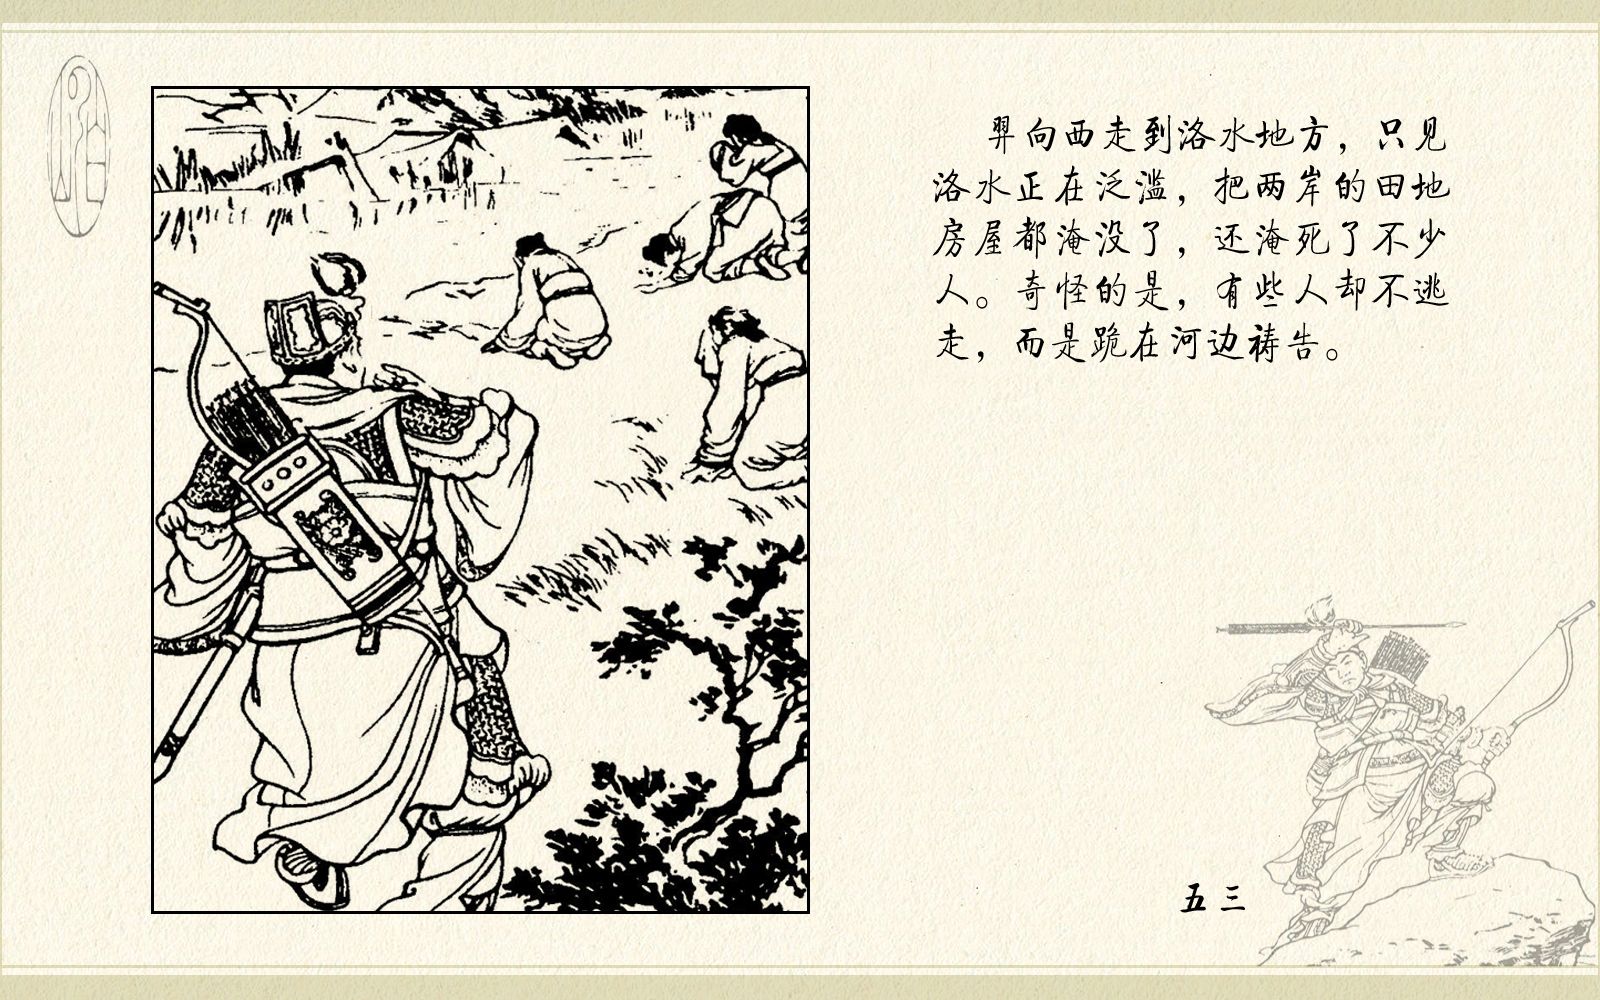 羿向西走到洛水地方，只见
洛水正在泛滥，把两岸的田地
房屋都淹没了，还淹死了不少
人。奇怪的是，有些人却不逃
走，而是跪在河边祷告。
五三